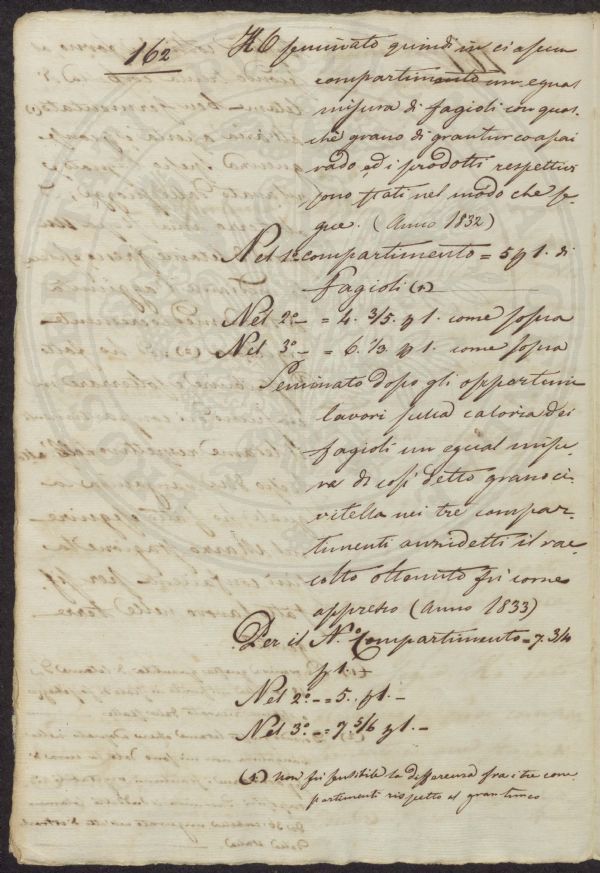 162
Ho seminato quindi in ciascun
compartimento un egual
misura di fagioli con qual-
che grano di granturco assai
rado ed i prodotti respettivi
sono stati nel modo che se-
gue. (Anno 1832)
Nel 1º compartimento = 5 p 1. di
Fagioli (1)
Nel 2º — = 4. 3/5. p 1. come sopra
Nel 3º — = 6. 1/3. p 1. come sopra
Seminato dopo gli opportuni
lavori sulla caloria dei
fagioli un egual misu-
ra di così detto grano ci-
vitella nei tre compar-
timenti anzidetti il rac-
colto ottenuto fu come
appresso (Anno 1833)
Per il Nº Compartimento = 7. 3/4
p 1. —
Nel 2º — = 5. p 1. —
Nel 3º — = 7 5/6 p 1. —
(1) non fu sensibile la differenza fra i tre com
partimenti rispetto al granturco